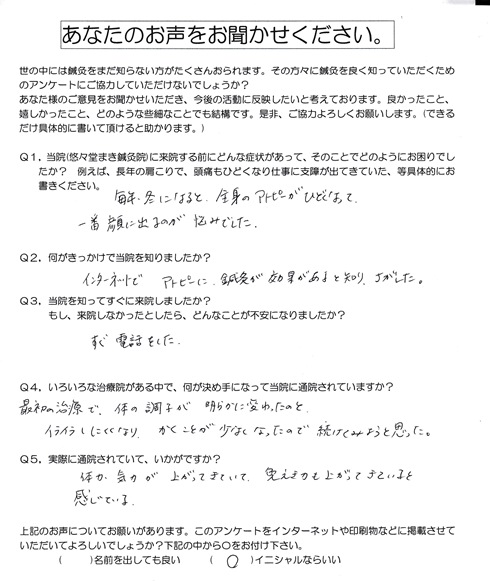 あなたのお声をお聞かせください。
世の中には鍼灸をまだ知らない方がたくさんおられます。その方々に鍼灸を良く知っていただくため
のアンケートにご協力していただけないでしょうか？
あなた様のご意見をお聞かせいただき、今後の活動に反映したいと考えております。良かったこと、
嬉しかったこと、どのような些細なことでも結構です。是非、ご協力よろしくお願いします。(できる
だけ具体的に書いて頂けると助かります。)
Q1．当院(悠々堂まき鍼灸院)に来院する前にどんな症状があって、そのことでどのようにお困りでし
たか？ 例えば、長年の肩こりで、頭痛もひどくなり仕事に支障が出てきていた、等具体的にお
書きください。
毎年、冬になると、全身のアトピーがひどくなって、
一番顔に出るのが悩みでした。
Q2．何がきっかけで当院を知りましたか？
インターネットで アトピーに、鍼灸が効果があると知り、さがした。
Q3．当院を知ってすぐに来院しましたか？
もし、来院しなかったとしたら、どんなことが不安になりましたか？
すぐ電話をした。
Q4．いろいろな治療院がある中で、何が決め手になって当院に通院されていますか？
最初の治療で、体の調子が明らかに変わったのと、
イライラしにくくなり、かくことが少なくなったので続けてみようと思った。
Q5．実際に通院されていて、いかがですか？
体力、気力が上がってきていて、免えき力も上がってきていると
感じている。
上記のお声についてお願いがあります。このアンケートをインターネットや印刷物などに掲載させて
いただいてよろしいでしょうか？下記の中から○をお付け下さい。
(　　)名前を出しても良い　(　○　)イニシャルならいい